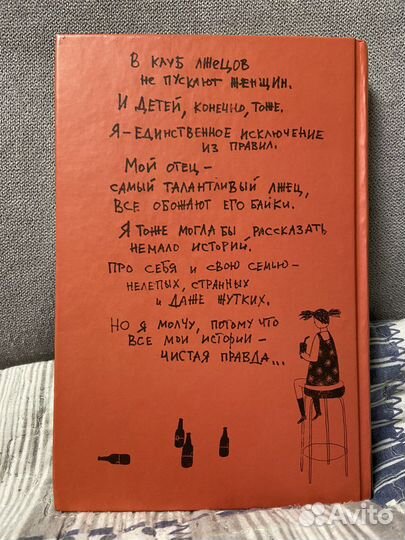 В КЛУБ ЛЖЕЦОВ
НЕ ПУСКАЮТ ЖЕНЩИН.
И ДЕТЕЙ, КОНЕЧНО, ТОЖЕ.
Я – ЕДИНСТВЕННОЕ ИСКЛЮЧЕНИЕ
ИЗ ПРАВИЛ.
МОЙ ОТЕЦ –
САМЫЙ ТАЛАНТЛИВЫЙ ЛЖЕЦ,
ВСЕ ОБОЖАЮТ ЕГО БАЙКИ.
Я ТОЖЕ МОГЛА БЫ РАССКАЗАТЬ
НЕМАЛО ИСТОРИЙ.
ПРО СЕБЯ И СВОЮ СЕМЬЮ –
НЕЛЕПЫХ, СТРАННЫХ
И ДАЖЕ ЖУТКИХ.
НО Я МОЛЧУ, ПОТОМУ ЧТО
ВСЕ МОИ ИСТОРИИ –
ЧИСТАЯ ПРАВДА...
Avito